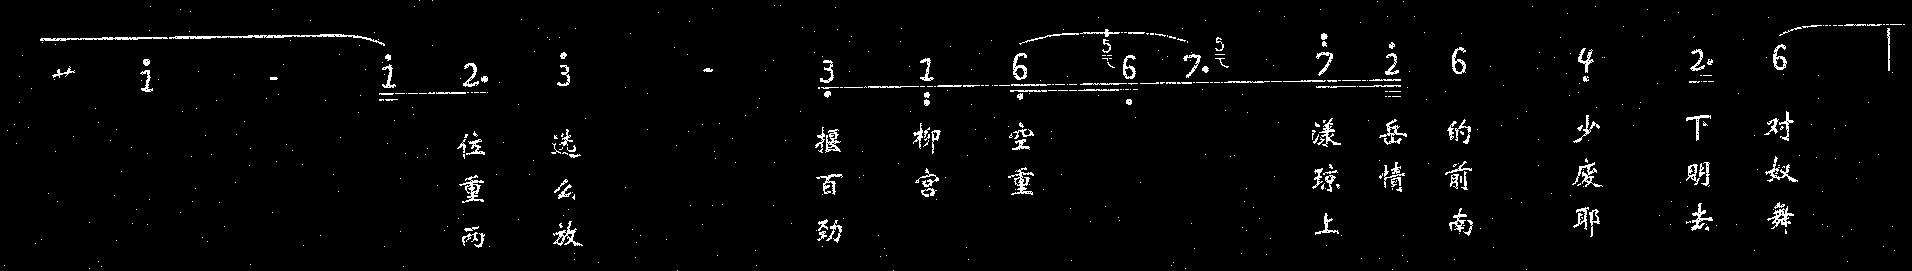 サ i - i 2. 3 - 3 1 6 5 6 7. 5 7 2 6 4 2. 6
位 选 揠 柳 空 漾 岳 的 少 下 对
重 么 百 宫 重 琼 情 前 废 明 奴
两 放 劲 上 南 耶 去 舞